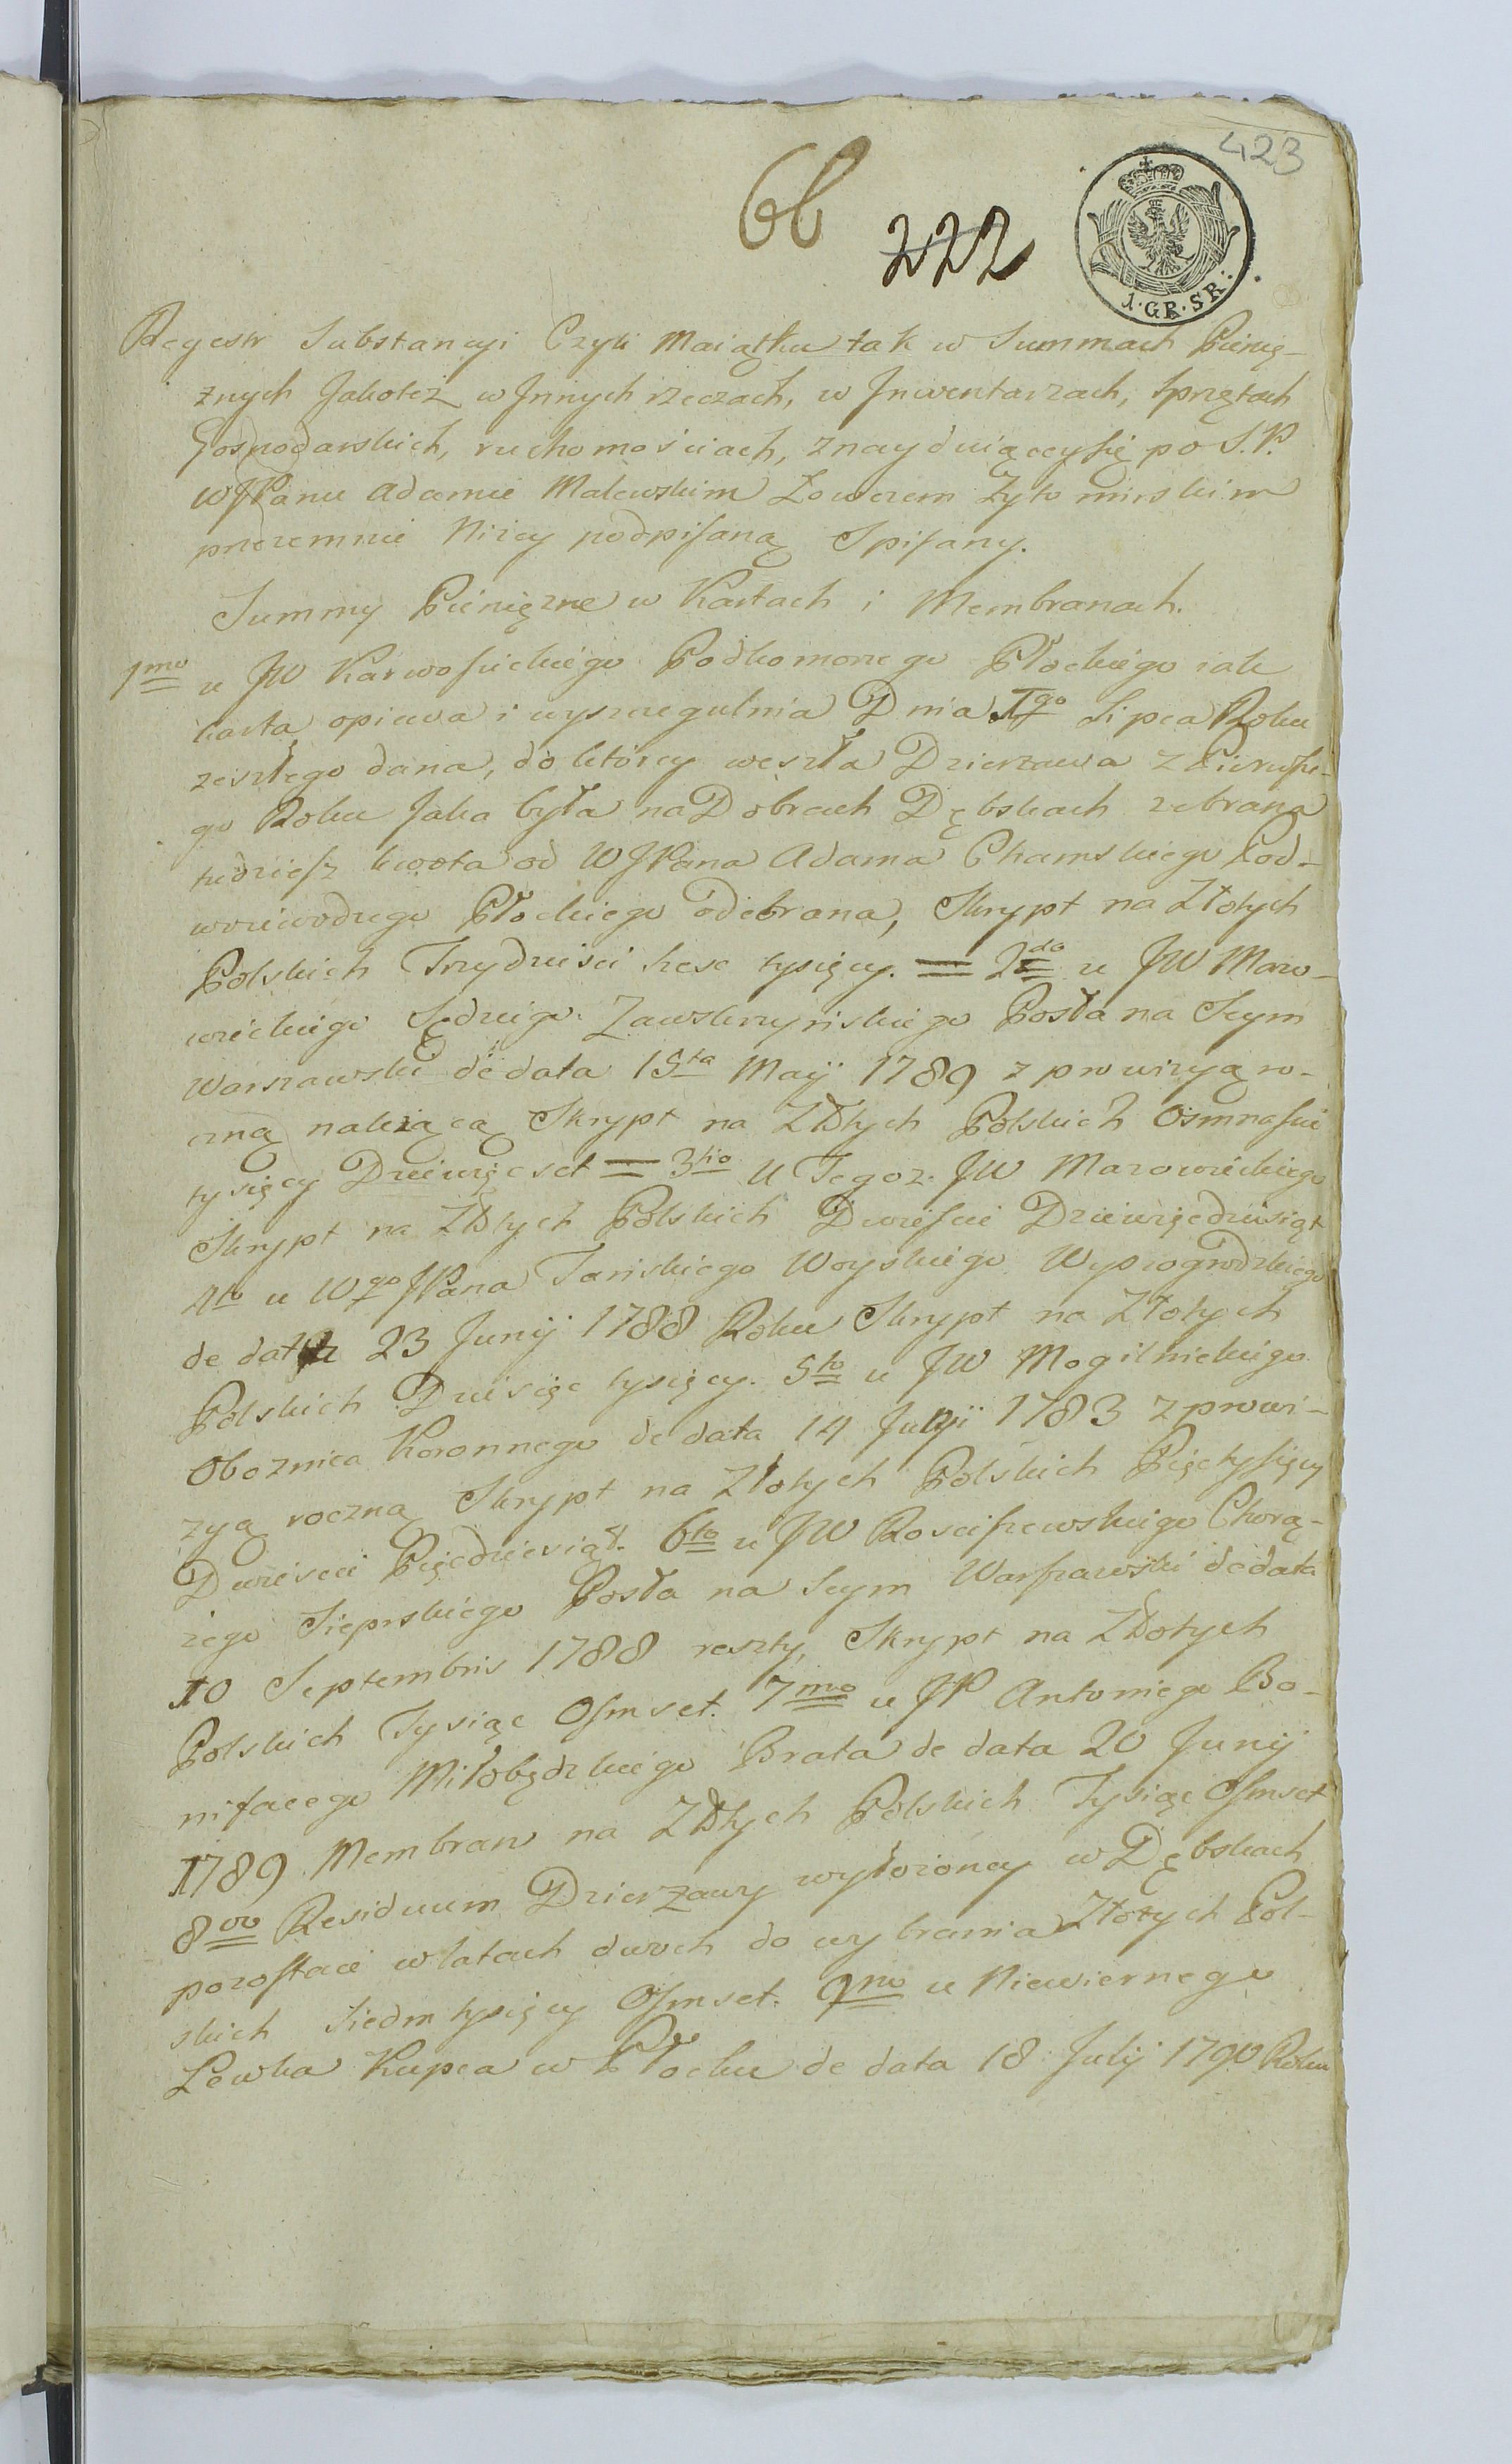 423
6b
222
1·GR·SR:
Regestr Substancyi Czyli Maiątku tak w Summach Pienię-
żnych Jakoteż w Jnnych rzeczach, w Jnwentarzach, Sprzętach
Gospodarskich, ruchomościach, znayduiącey się po S.P.
WJPanu Adamie Malewskim Łowczem Zytomirskim
przezemnie Niżey podpisaną Spisany.
Summy Pieniężne w Kartach i Membranach.
1mo u JW Karwosieckiego Podkomorzego Płockiego iak
karta opiewa i wyszczegulnia Dnia 1go Lipca Roku
zeszłego dana, do ktorey weszła Dzierzawa z Pierwsze-
go Roku Jaka była na Dobrach Dębskach zebrana
tudziesz kwota od WJPana Adama Chamskiego Pod-
woiewodzego Płockiego odebrana, Skrypt na Złotych
Polskich Trzydzieści szesc tysięcy. = 2do u JW Mazo-
wieckiego Sędziego Zawskrzyńskiego Posła na Seym
Warszawski de data 15ta Maij 1789 z prowizyą ro-
czną należącą Skrypt na Złłtych Polskich Osmnaście
tysięcy Dziewięcset = 3tio U Tegoz JW Mazowieckiego
Skrypt na Złłtych Polskich Dwieście Dziewięcdziesiąt
4to u Wgo JPana Tańskiego Woyskiego Wyszogrodzkiego
de data 23 Junij 1788 Roku Skrypt na Złotych
Polskich Dziesięc tysięcy. 5to u JW Mogilnickiego
Oboznica Koronnego de data 14 Junji 1783 z prowi-
zyą roczną Skrypt na Złotych Polskich Pięc tysięcy
Dwiescie Pięcdziesiąt. 6to u JW Rosciszewskiego Chorą-
żego Sieprskiego Posła na Seym Warszawski de data
10 Septembris 1788 reszty, Skrypt na Złłotych
Polskich Tysiąc Osmset. 7mo u JP Antoniego Bo-
nifacego Miłobędzkiego Brata de data 20 Junij
1789 Membran na Złłtych Polskich Tysiąc Osmset
8vo Residuum Dzierzawy wyłożoney w Dębskach
pozostaie w latach dwoch do wybrania Złotych Pol-
skich Siedm tysięcy Osmset. 9no u Niewiernego
Lewka Kupca w Płocku de data 18 Julij 1790 Roku